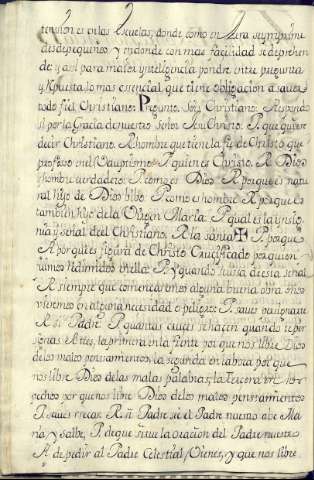 tension es en las Escuelas, donde como en Zera se ymprime
desde pequeños y en donde con mas facilidad se deprehen
de: y asi para maior ynteligencia pondre entre pregunta
y Rpuesta lo mas esencial que tiene obligacion a saver
todo fiel Christiano: Pregunto. Sois Christiano: Respondo
si por la Gracia de nuestro Señor Jesu Christo. P. que quiere
decir Christiano. R hombre que tiene la fe de Christo que
profeso en el Bauptismo. P. quien es Christo. R Dios
y hombre verdadero. P. como es Dios R. porque es natu
ral hijo de Dios bibo. P. como es hombre R. porque es
tambien hijo de la Virgen Maria. P. qual es la ynsig
nia y señal de el Christiano. R la santa ✠ P. porque
R porque es figura de Christo Crucificado por quien
fuimos redimidos en ella. P. y quando de esta señal
R siempre que comenzaremos alguna buena obra o nos
vieremos en alguna necesidad o peligro: P.
R si Padre P. quantas cruces se hacen quando te per
signas R tres, la primera en la frente por que nos libre Dios
de los malos pensamientos, la segunda en la boca por que
nos libre Dios de las malas palabras, la tercera en los
pechos por que nos libre Dios de los malos pensamientos
P. saves rezar. R si Padre se el Padre nuestro abe Ma
ria y salbe, P. de que sirve la oracion del Padre nuestro
R. de pedir al Padre Celestial Vienes, y que nos libre